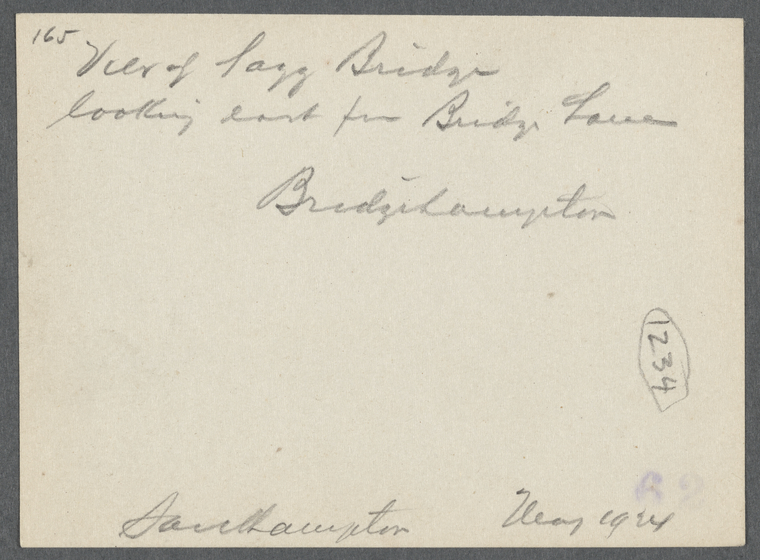 165
View of Sagg Bridge
looking east fm Bridge Lane
Bridgehampton
1234
62
Southampton May 1924